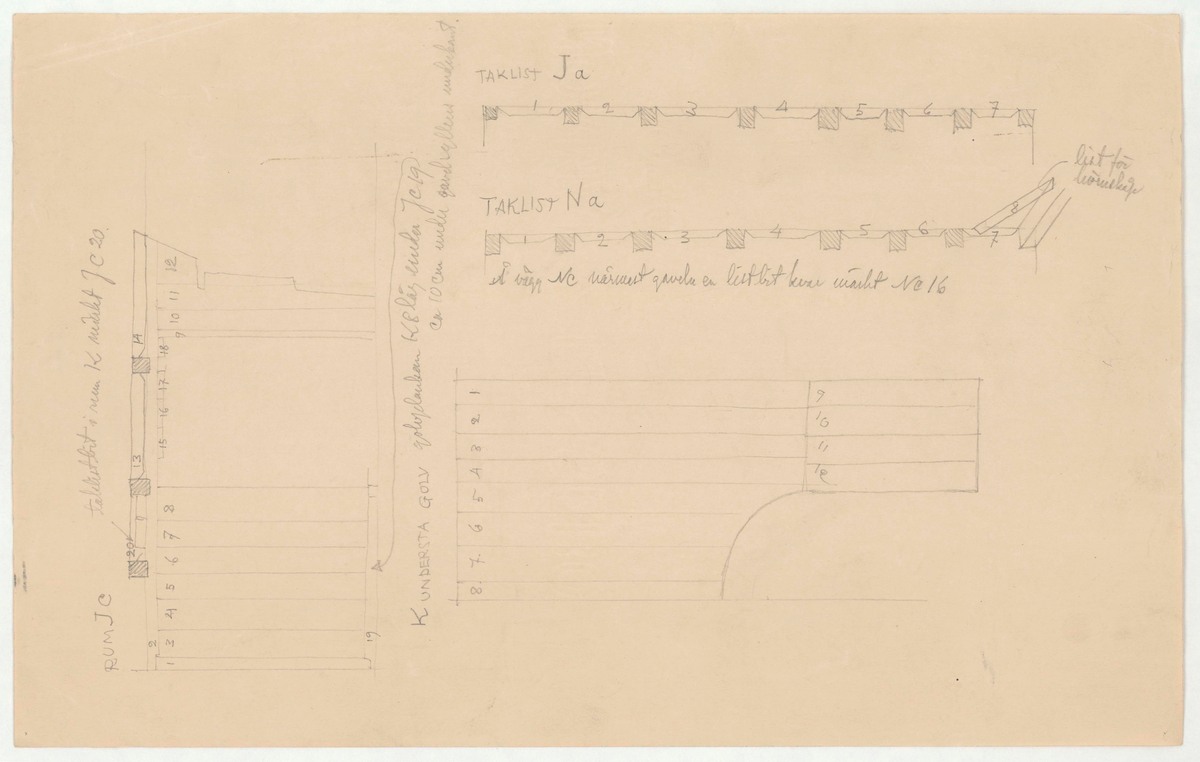 TAKLIST Ja
1 2 3 4 5 6 7
TAKLIST Na
1 2 3 4 5 6 7
8
list för
hörnskåp
Å vägg NC närmast gaveln en listbit kvar märkt NC 16
RUM JC
taklistbit i rum K märkt JC 20
20 13 14
1 2 3 4 5 6 7 8
15 16 17 18
9 10 11 12
19
K UNDERSTA GOLV golvplankan K8 låg under JC 19.
ca 10 cm under underkant.
1 2 3 4 5 6 7 8
9
10
11
12